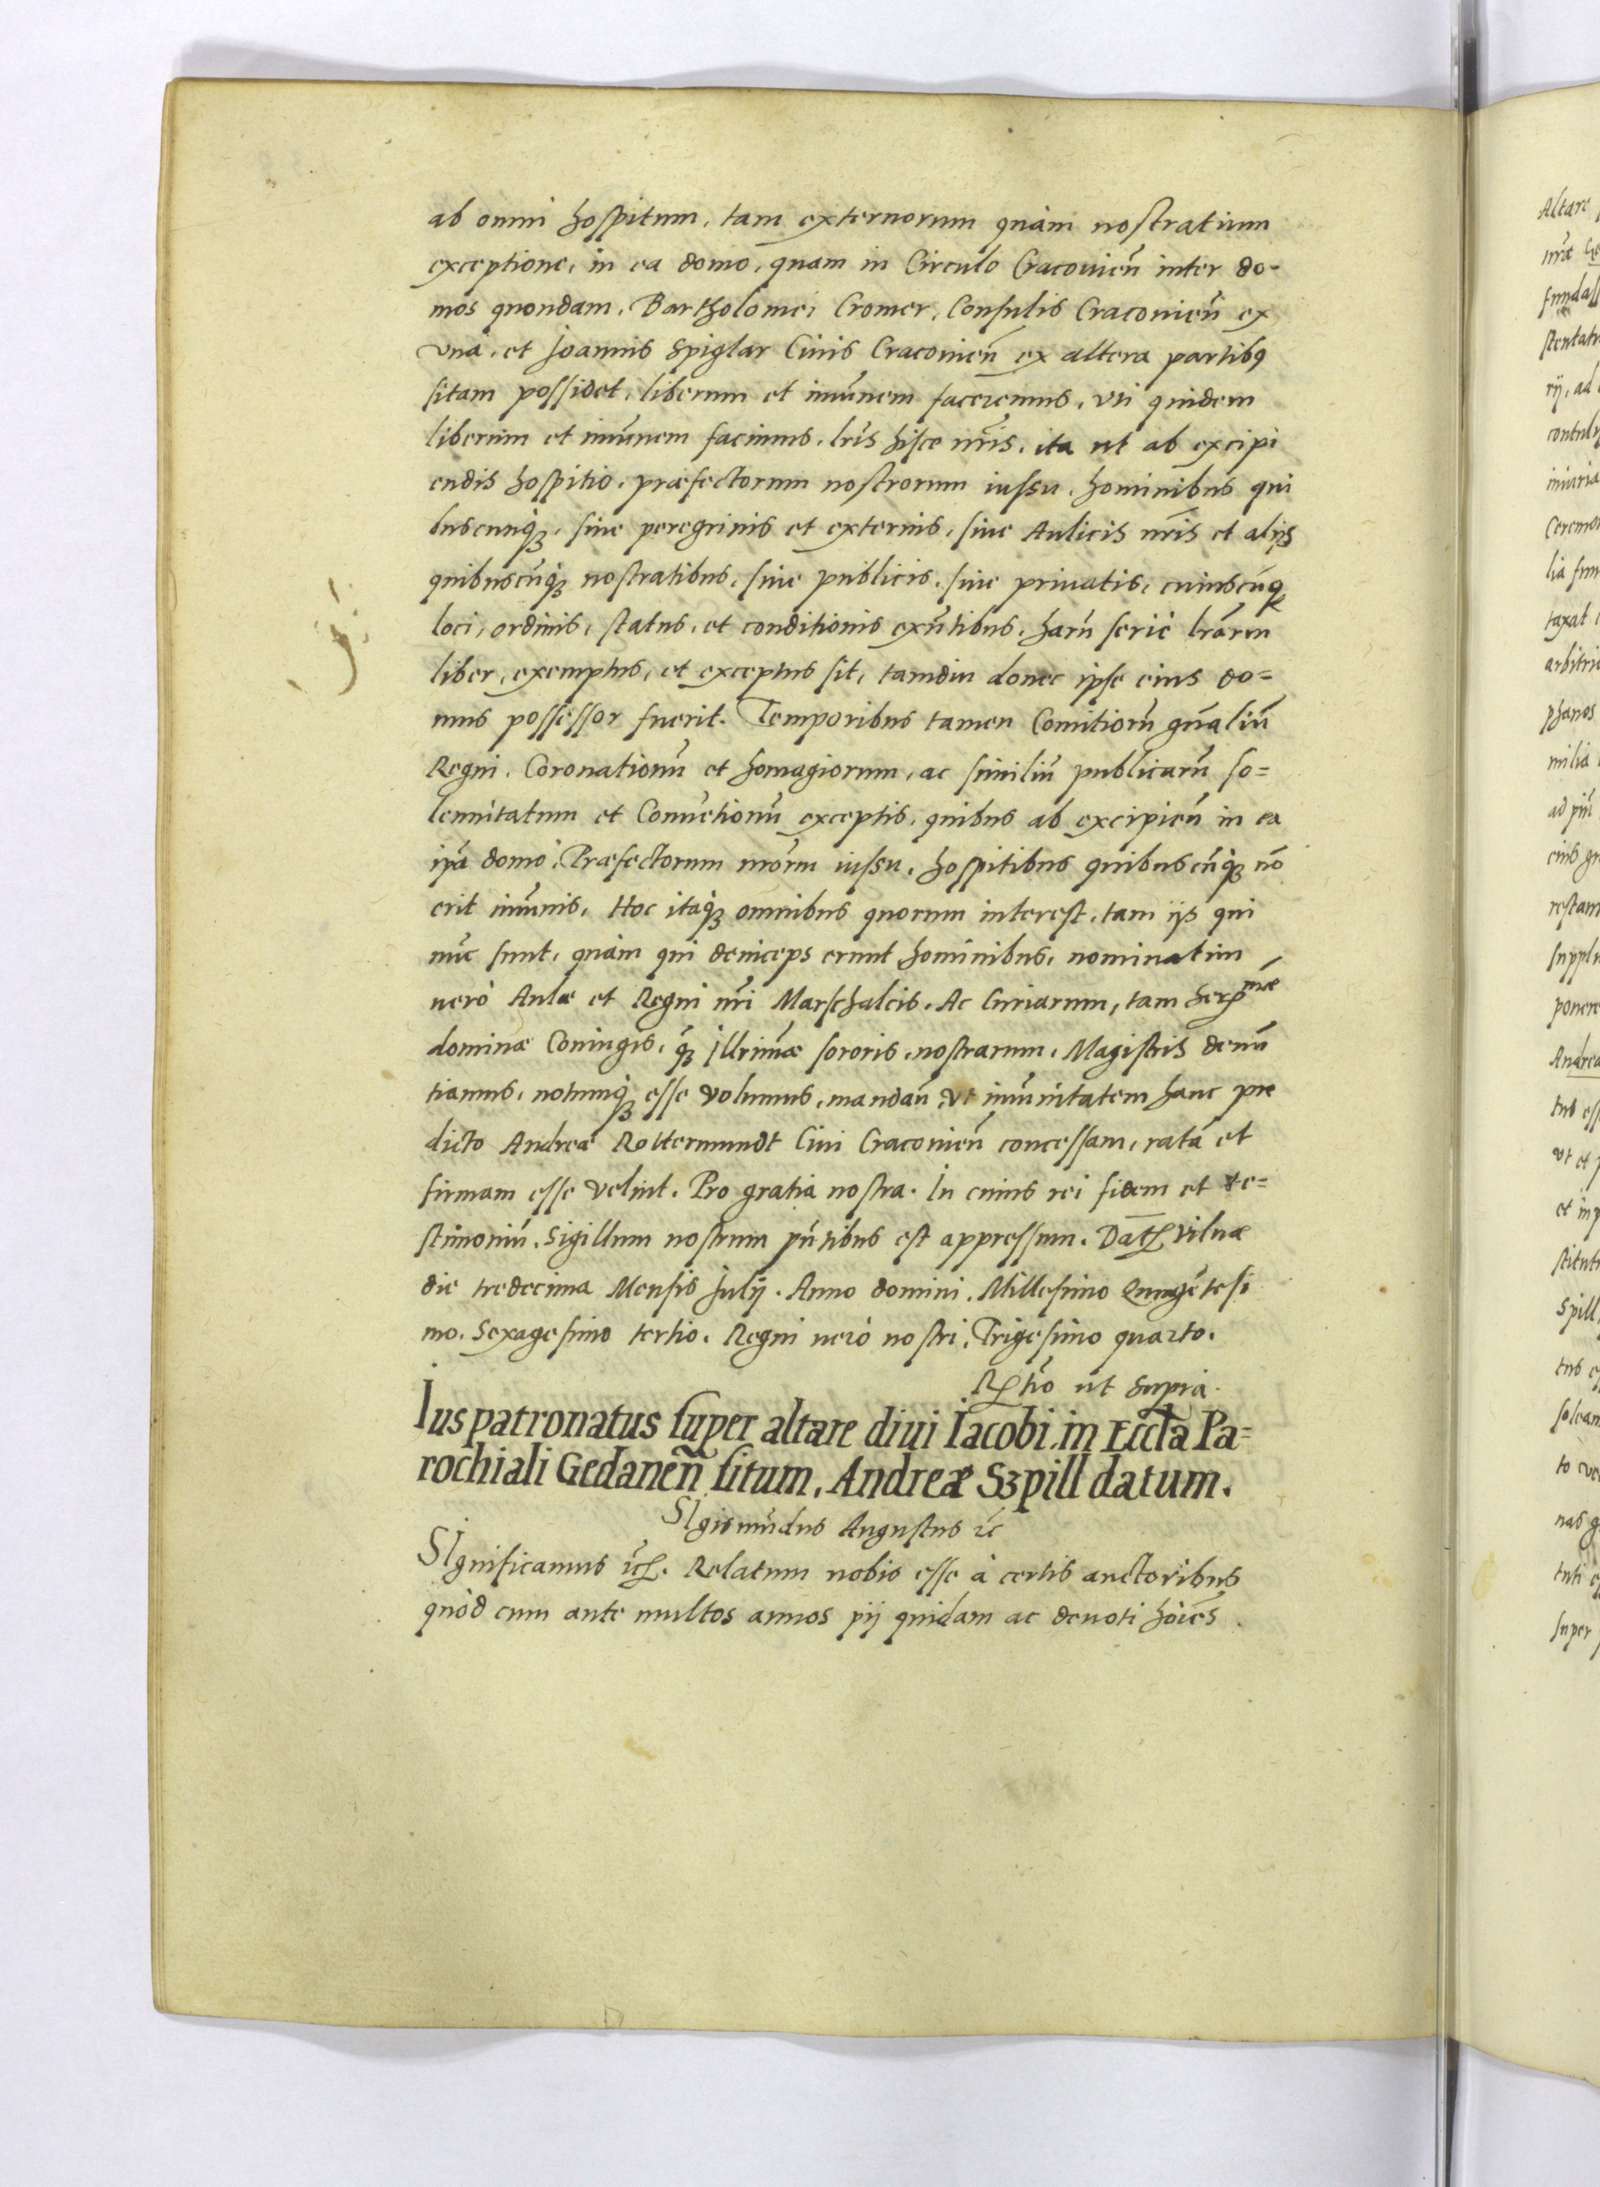 ab omni hospitum, tam externorum quàm nostratium
exceptione, in ea domo, quam in Circulo Cracovien̄ inter do=
mos quondam, Bartholomei Cromer, Consulis Cracovien̄ ex
vna, et Joannis Spiglar Ciuis Cracouien̄ ex altera partibꝰ
sitam possidet, liberum et imūnem faceremus, vti quidem
liberum et imūnem facimus, lr̄is hisce nr̄is, ita ut ab excipi
endis hospitio, præfectorum nostrorum iussu, hominibus qui
buscunqȝ, siue peregrinis et externis, siue Aulicis nr̄is et alijs
quibuscūqȝ nostratibus, siue publicis, siue priuatis, cuiuscūqȝ
loci, ordinis, status, et conditionis exn̄tibus, harū serie lrārum
liber, exemptus, et exceptus sit, tamdiu donec ipse eius do=
mus possessor fuerit. Temporibus tamen Comitiorū gn̄aliū
Regni, Coronationū et homagiorum, ac similiū publicarū so=
lennitatum et Conuētionū exceptis, quibus ab excipien̄ in ea
ip̄a domo, Præfectorum nrōrm iussu, hospitibus quibuscūqȝ nō
erit imūnis, Hoc itaqȝ omnibus quorum interest, tam ijs qui
nūc sunt, quàm qui deinceps erunt hominibus, nominatim
verò Aulæ et Regni nr̄i Marschalcis, Ac Curiarum, tam
dominæ Coniugis, qȝ̄ Illrimæ sororis, nostrarum, Magistris denū
tiamus, notumqȝ esse volumus, mandan̄, vt imūnitatem hanc præ
dicto Andreæ Rottermundt Ciui Cracouien̄ concessam, ratā et
firmam esse velint. Pro gratia nostra. In cuius rei fidem et te=
stimoniū, Sigillum nostrum pn̄tibus est appressum. Dat̄ Vilnæ
die tredecima Mensis Julij. Anno domini, Millesimo Quingētesi
mo, Sexagesimo tertio. Regni verò nostri, Trigesimo quarto.
Rtīo ut supra.
Ius patronatus super altare diui Iacobi, in Eccl̄a Pa=
rochiali Gedanen̄ situm, Andreæ Sȝpill datum.
SIgismūdus Augustus ꝛc̄
SIgnificamus ꝛc̄. Relatum nobis esse à certis auctoribus
quòd cum ante multos annos pij quidam ac deuoti hoīes